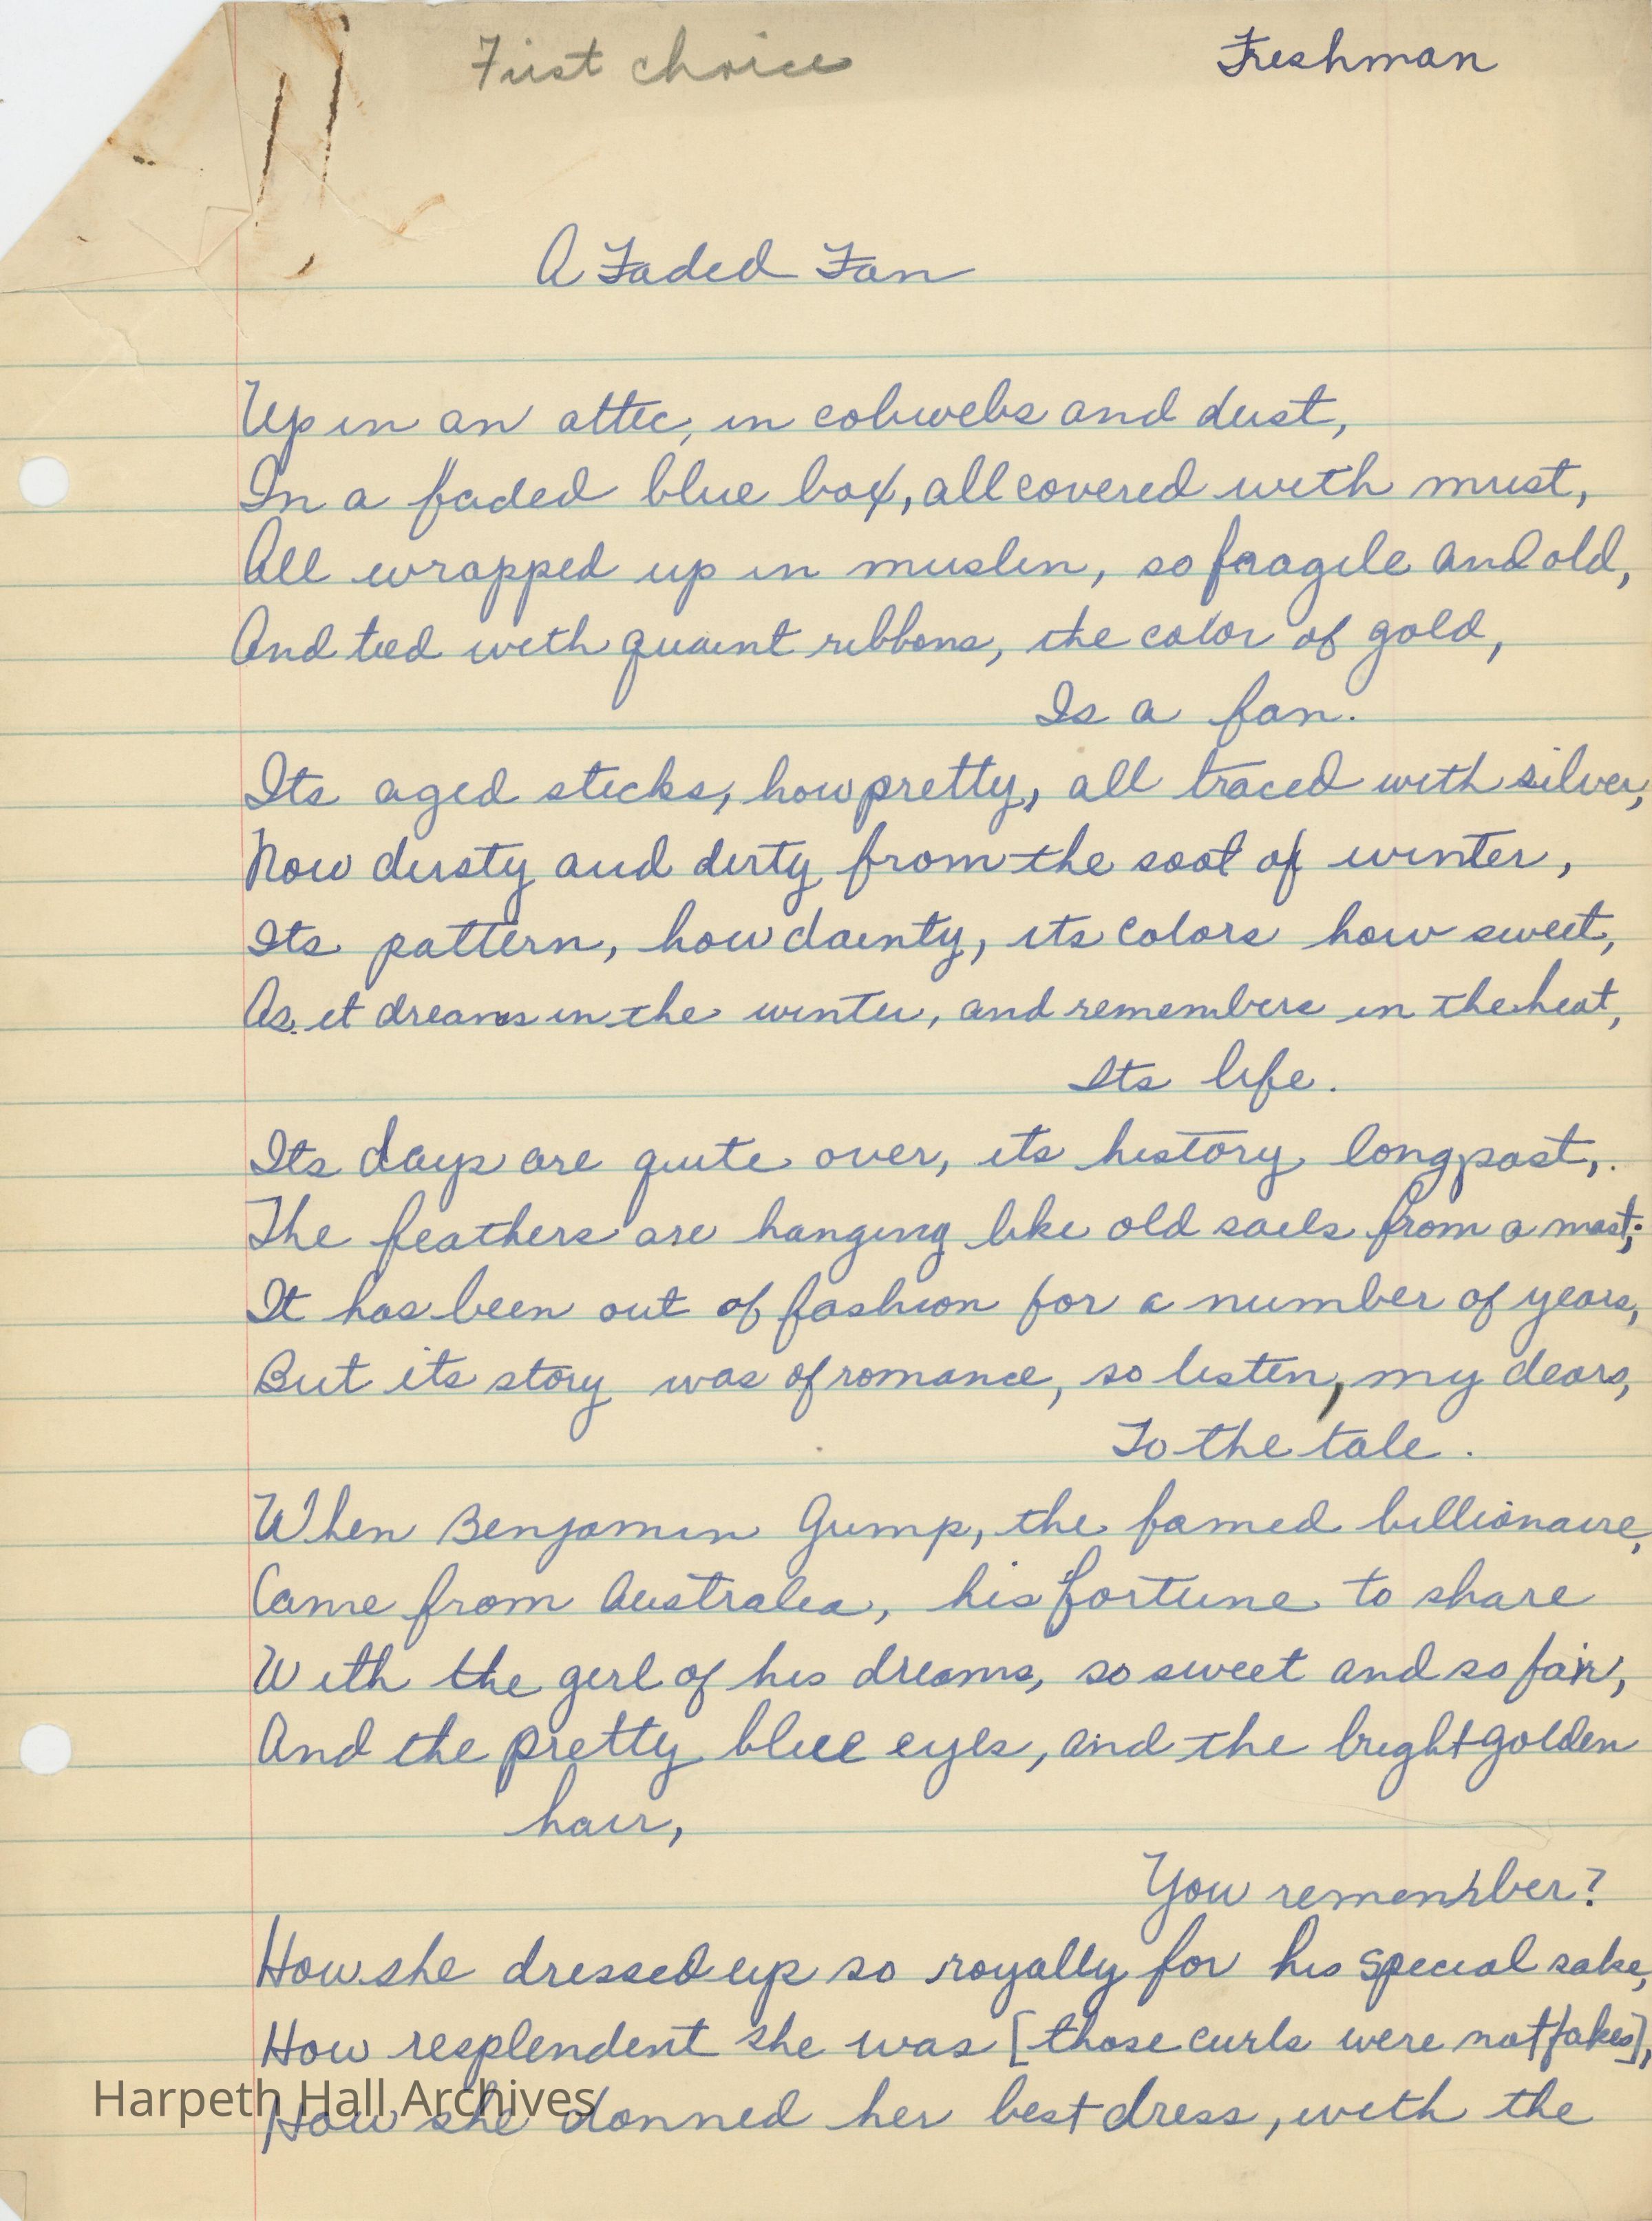 First choice
Freshman
A Faded Fan
Up in an attic, in cobwebs and dust,
In a faded blue box, all covered with must,
All wrapped up in muslin, so fragile and old,
And tied with quaint ribbons, the color of gold,
Is a fan.
Its aged sticks, how pretty, all traced with silver,
Now dusty and dirty from the soot of winter,
Its pattern, how dainty, its colors how sweet,
As it dreams in the winter, and remembers in the heat,
Its life.
Its days are quite over, its history long past,.
The feathers are hanging like old sails from a mast;
It has been out of fashion for a number of years,
But its story was of romance, so listen, my dears,
To the tale.
When Benjamin Gump, the famed billionaire,
Came from Australia, his fortune to share
With the girl of his dreams, so sweet and so fair,
And the pretty blue eyes, and the bright golden
hair,
You remember?
How she dressed up so royally for his special sake,
How resplendent she was [those curls were not fakes],
How she donned her best dress, with the
Harpeth Hall Archives